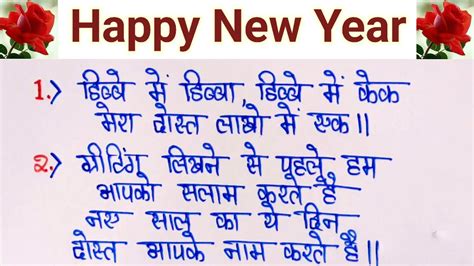 Happy New Year
1.> डिब्बे में डिब्बा, डिब्बे में केक
मेरा दोस्त लाखो में एक॥
2.> ग्रीटिंग लिखने से पहले हम
आपको सलाम करते हैं
नए साल का ये दिन
दोस्त आपके नाम करते हैं॥